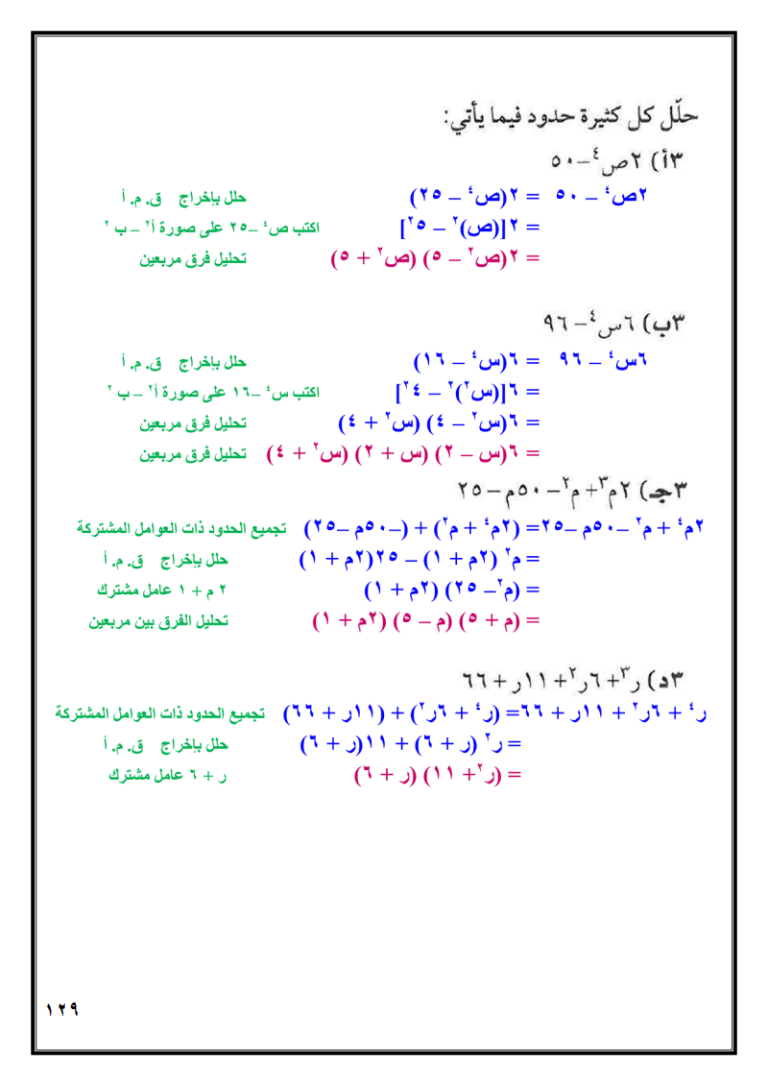 حلّل كل كثيرة حدود فيما يأتي:
٣أ) ٢ص⁴ – ٥٠
٢ص⁴ – ٥٠ = ٢(ص⁴ – ٢٥) حلل بإخراج ق. م. أ
= ٢[(ص)² – ٢٥²] اكتب ص⁴ – ٢٥ على صورة أ² – ب²
= ٢(ص² – ٥) (ص² + ٥) تحليل فرق مربعين
٣ب) ٦س⁴ – ٩٦
٦س⁴ – ٩٦ = ٦(س⁴ – ١٦) حلل بإخراج ق. م. أ
= ٦[(س²)² – ٤²] اكتب س⁴ – ١٦ على صورة أ² – ب²
= ٦(س² – ٤) (س² + ٤) تحليل فرق مربعين
= ٦(س – ٢) (س + ٢) (س² + ٤) تحليل فرق مربعين
٣جـ) ٢م³ + م² – ٥٠م – ٢٥
٢م⁴ + م² – ٥٠م – ٢٥ = (٢م⁴ + م²) + (–٥٠م – ٢٥) تجميع الحدود ذات العوامل المشتركة
= م² (٢م + ١) – ٢٥(٢م + ١) حلل بإخراج ق. م. أ
= (م² – ٢٥) (٢م + ١) ٢ م + ١ عامل مشترك
= (م + ٥) (م – ٥) (٢م + ١) تحليل الفرق بين مربعين
٣د) ر³ + ٦ر² + ١١ر + ٦٦
ر⁴ + ٦ر² + ١١ر + ٦٦ = (ر⁴ + ٦ر²) + (١١ر + ٦٦) تجميع الحدود ذات العوامل المشتركة
= ر² (ر + ٦) + ١١(ر + ٦) حلل بإخراج ق. م. أ
= (ر² + ١١) (ر + ٦) ر + ٦ عامل مشترك
١٢٩